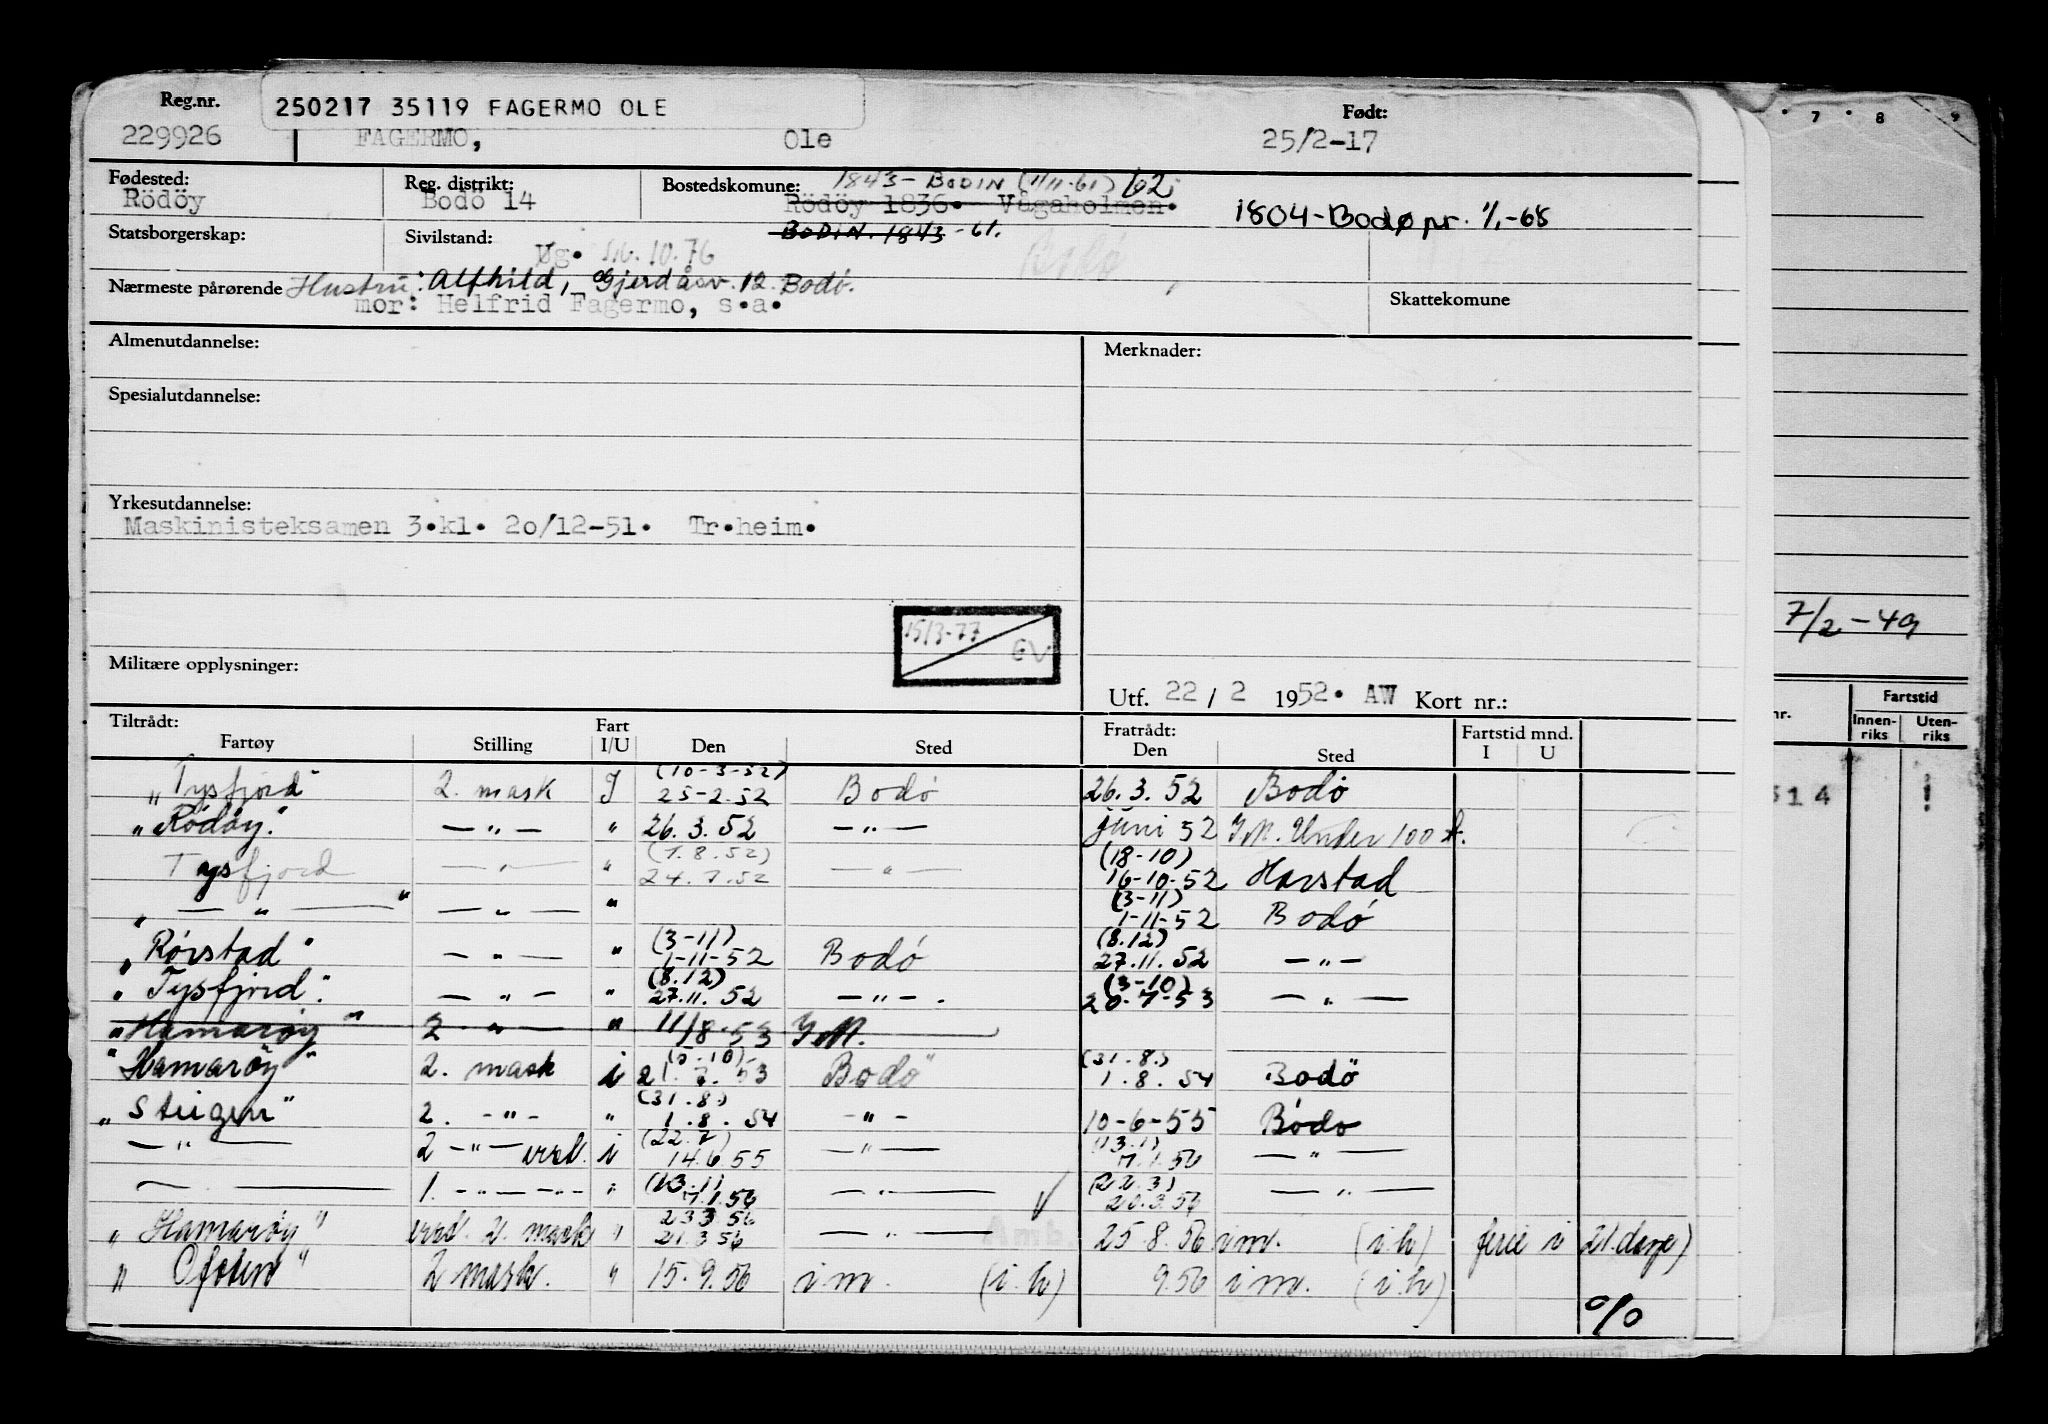 Reg.nr. 250217 35119 FAGERMO OLE Født: 7 8 9
229926 FAGERMO, Ole 25/2-17
Fødested: Reg. distrikt: Bostedskomune: 1843 - BODIN (1/11-61) 62
Rödöy Bodö 14 Rödöy 1836. Vågaholmen. 1804-Bodø pr. 1/1-68
Statsborgerskap: Sivilstand: BODIN. 1843 -61.
Ug. 10.76 Bodø
Nærmeste pårørende Hustru: Alfhild, Gjerdåsv. 12. Bodø. Skattekomune
mor: Helfrid Fagermo, s.a.
Almenutdannelse: Merknader:
Spesialutdannelse:
Yrkesutdannelse:
Maskinisteksamen 3.kl. 20/12-51. Tr.heim.
7/2-49
15/3-77 EV
Militære opplysninger:
Utf. 22 / 2 1952. AW Kort nr.:
Tiltrådt: Fart Fratrådt: Fartstid mnd. nr. Fartstid
Fartøy Stilling I/U Den Sted Den Sted I U Innen-riks Uten-riks
(10-3-52)
"Tysfjord" 2. mask I 25-2.52 Bodø 26.3.52 Bodø 514 !
"Rödöy." — " — " 26.3.52 — " — juni 52 I M. Under 100 t.
(1.8.52) (18-10)
Tysfjord — " — " 24.7.52 — " — 16-10-52 Harstad
(3-11)
" — " — " — " — " 1-11-52 Bodø
(3-11) (8.12)
"Rørstad" — " — " 1-11-52 Bodø 27.11.52 — " —
(8.12) (3-10)
"Tysfjord". — " — " 27.11.52 — " — . 20-7-53 — " —
"Hamarøy" 2 — " — " 11/8-53 I M.
(5-10) (31.8.)
"Hamarøy" 2. mask i 21.7.53 Bodö 1.8.54 Bodö
(31.8.)
"Steigen" 2. - " - " 1.8.54 - " - 10-6-55 Bodo
(22.7) (13.1)
— " — 2 — " — i 14.6 55 — " — 7.1.56 — " —
(13.1) (22.3)
— " — 1. — " — " — " 7.1.56 — " — 20.3.56 — " —
23 3 56
"Hamarøy" 2. mask " 21 3 56 — " — Amb. 25.8.56 i m. (i.h) ferie i 21. dage)
"Ofoten" 2 mask. " 15.9.56 i m. (i.h) 9.56 i m. (i.h)
o/o